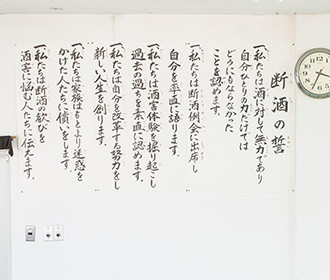 断酒の誓
一、私たちは酒に対して無力であり
自分ひとりの力だけでは
どうにもならなかった
ことを認めます。
一、私たちは断酒例会に出席し
自分を率直に語ります。
一、私たちは酒害体験を掘り起こし
過去の過ちを素直に認めます。
一、私たちは自分を改革する努力をし
新しい人生を創ります。
一、私たちは家族はもとより迷惑を
かけた人たちに償いをします
一、私たちは断酒の歓びを
酒害に悩む人たちに伝えます。